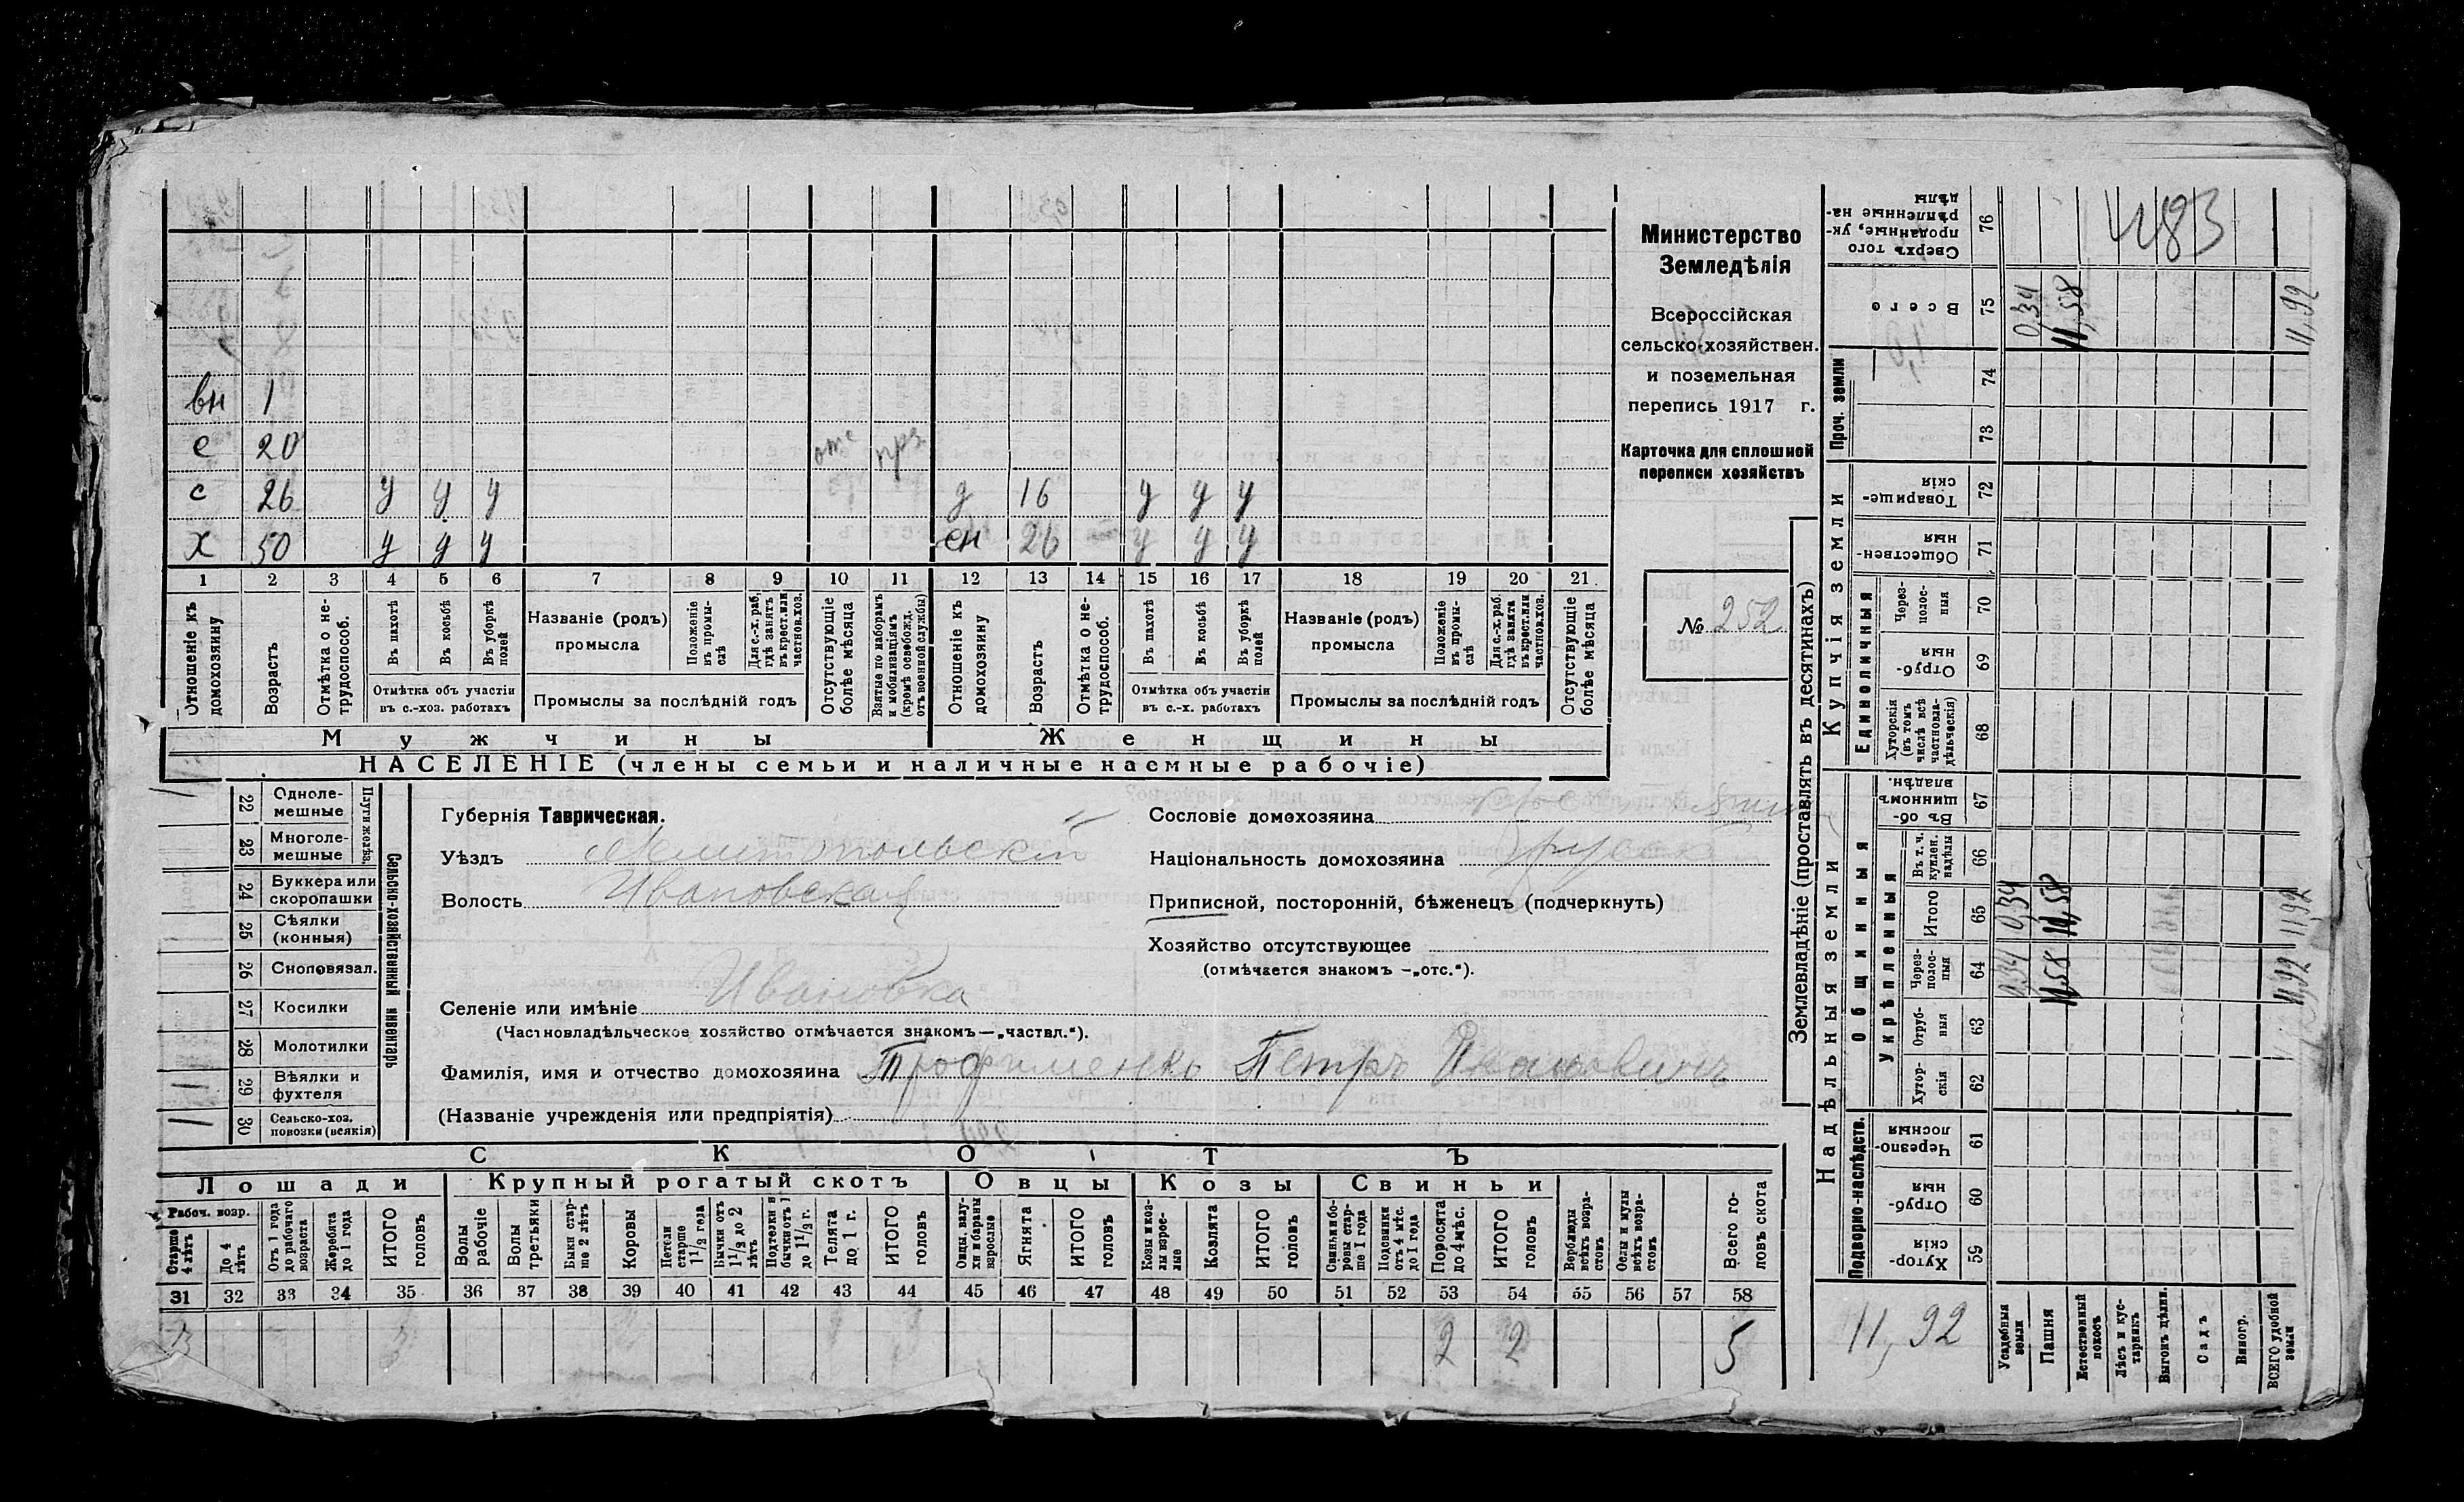 вн 1
с 20 отс прз
с 26 у у у д 16 у у у
х 50 у у у сн 26 у у у
1 2 3 4 5 6 7 8 9 10 11 12 13 14 15 16 17 18 19 20 21
Отношеніе къ домохозяину
Возрастъ
Отмѣтка о не-трудоспособ.
Въ пахотѣ
Въ косьбѣ
Въ уборкѣ полей
Отмѣтка объ участіи
въ с.-хоз. работахъ
Названіе (родъ)
промысла
Положеніе въ промы-слѣ
Для с.-х. раб. гдѣ занятъ въ крест. или частн. хоз.
Промыслы за послѣдній годъ
Отсутствующіе болѣе мѣсяца
Взятые по наборамъ и мобилизаціямъ (кромѣ освобожд. отъ военной службы)
Отношеніе къ домохозяину
Возрастъ
Отмѣтка о не-трудоспособ.
Въ пахотѣ
Въ косьбѣ
Въ уборкѣ полей
Отмѣтка объ участіи
въ с.-х. работахъ
Названіе (родъ)
промысла
Положеніе въ промы-слѣ
Для с.-х. раб. гдѣ занята въ крест. или частн. хоз.
Промыслы за послѣдній годъ
Отсутствующіе болѣе мѣсяца
Мужчины Женщины
НАСЕЛЕНІЕ (члены семьи и наличные наемные рабочіе)
Министерство
Земледѣлія
Всероссійская
сельско-хозяйствен.
и поземельная
перепись 1917 г.
Карточка для сплошной
переписи хозяйствъ
№ 252
22 Однолемешные
23 Многолемешные
24 Буккера или скоропашки
25 Сѣялки (конныя)
26 Сноповязал.
27 Косилки
28 Молотилки
29 Вѣялки и фухтеля 1
30 Сельско-хоз. повозки (всякія) 1
Плуги желѣз.
Сельско-хозяйственный инвентарь
Губернія Таврическая.
Уѣздъ Мелитопольскій
Волость Ивановская
Селеніе или имѣніе Ивановка
(Частновладѣльческое хозяйство отмѣчается знакомъ—„частвл.“).
Фамилія, имя и отчество домохозяина Трофименко Петръ
(Названіе учрежденія или предпріятія)
Сословіе домохозяина
Національность домохозяина русск
Приписной, посторонній, бѣженец (подчеркнуть)
Хозяйство отсутствующее
(отмѣчается знакомъ —„отс.“).
СКОТЪ
Лошади Крупный рогатый скотъ Овцы Козы Свиньи
Рабоч. возр.
Старше 4 лѣтъ
До 4 лѣтъ
Отъ 1 года до рабочаго возраста
Жеребята до 1 года
ИТОГО головъ
Волы рабочіе
Волы третьяки
Быки старше 2 лѣтъ
Коровы
Нетели старше 1½ года
Бычки отъ 1½ до 2 лѣтъ
Подтелки и бычки отъ 1 до 1½ г.
Телята до 1 г.
ИТОГО головъ
Овцы, валухи и бараны взрослые
Ягнята
ИТОГО головъ
Козы и козлы взрослые
Козлята
ИТОГО головъ
Свиньи и боровы старше 1 года
Подсвинки отъ 4 мѣс. до 1 года
Поросята до 4 мѣс.
ИТОГО головъ
Верблюды всѣхъ возрастовъ
Ослы и мулы всѣхъ возрастовъ
Всего головъ скота
31 32 33 34 35 36 37 38 39 40 41 42 43 44 45 46 47 48 49 50 51 52 53 54 55 56 57 58
3 3 2 2 5
Землевладѣніе (проставлять въ десятинахъ)
Надѣльныя земли Купчія земли Проч. земли
Подворно-наслѣдств. Общинныя Укрѣпленныя Единоличныя
59 Хуторскія
60 Отрубныя
61 Черезполосныя
62 Хуторскія
63 Отрубныя
64 Черезполосныя 0,34 11,58 11,92
65 Итого 0,34 11,58 11,92
66 Въ т. ч. куплен. надѣлы
67 Въ общинномъ владѣн.
68 Хуторскія (въ томъ числѣ всѣ частновладѣльческія)
69 Отрубныя
70 Черезполосныя
71 Общественныя
72 Товарищескія
73
74
75 Всего 0,34 11,58 11,92
76 Сверхъ того проданные, укрѣпленные надѣлы
483
11,92
Усадебныя земли
Пашня
Естественный покосъ
Лѣсъ и кустарникъ
Выгонъ цѣлин.
Садъ
Виногр.
ВСЕГО удобной земли